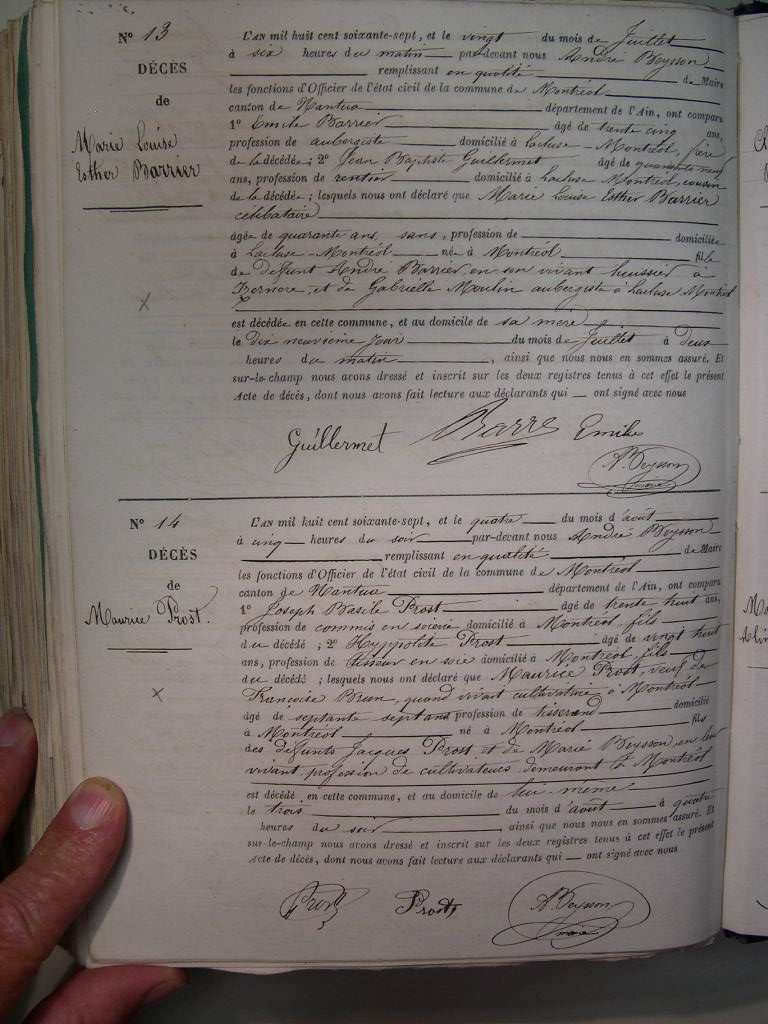 N° 13
DÉCÈS
de
Marie Louise
Esther Barrier
L'AN mil huit cent soixante-sept, et le vingt du mois de Juillet
à six heures du matin par-devant nous André Beysson
remplissant en qualité de Maire
les fonctions d'Officier de l'état civil de la commune de Montréal
canton de Nantua département de l'Ain, ont comparu
1° Emile Barrier âgé de trente cinq ans,
profession de aubergiste domicilié à Lacluse-Montréal, frère
de la décédée; 2° Jean Baptiste Guillermet âgé de quarante neuf
ans, profession de rentier domicilié à Lacluse Montréal, cousin
de la décédée; lesquels nous ont déclaré que Marie Louise Esther Barrier
célibataire
âgée de quarante ans, sans, profession de domiciliée
à Lacluse-Montréal née à Montréal fille
de défunt André Barrier en son vivant huissier à
et de Gabrielle Moulin aubergiste à Lacluse Montréal
est décédée en cette commune, et au domicile de sa mère
le Dix neuvième jour du mois de Juillet à Deux
heures du matin, ainsi que nous nous en sommes assuré. Et
sur-le-champ nous avons dressé et inscrit sur les deux registres tenus à cet effet le présent
Acte de décès, dont nous avons fait lecture aux déclarants qui ont signé avec nous
Guillermet Barre Emile
A. Beysson
maire
N° 14
DÉCÈS
de
Maurice Prost.
L'AN mil huit cent soixante-sept, et le quatre du mois d'août
à cinq heures du soir par-devant nous André Beysson
remplissant en qualité de Maire
les fonctions d'Officier de l'état civil de la commune de Montréal
canton de Nantua département de l'Ain, ont comparu
1° Joseph Basile Prost âgé de trente huit ans,
profession de commis en soierie domicilié à Montréal, fils
du décédé; 2° Hyppolite Prost âgé de vingt huit
ans, profession de tisseur en soie domicilié à Montréal, fils
du décédé; lesquels nous ont déclaré que Maurice Prost, veuf de
Françoise Brun, quand vivant cultivatrice à Montréal
âgé de septante sept ans profession de tisserand domicilié
à Montréal né à Montréal fils
des défunts Jacques Prost et de Marie Beysson, en leur
vivant profession de cultivateurs demeurant à Montréal
est décédé en cette commune, et au domicile de lui-même
le trois du mois d'août à quatre
heures du soir, ainsi que nous nous en sommes assuré. Et
sur-le-champ nous avons dressé et inscrit sur les deux registres tenus à cet effet le présent
Acte de décès, dont nous avons fait lecture aux déclarants qui ont signé avec nous
Prost Prost A. Beysson
maire